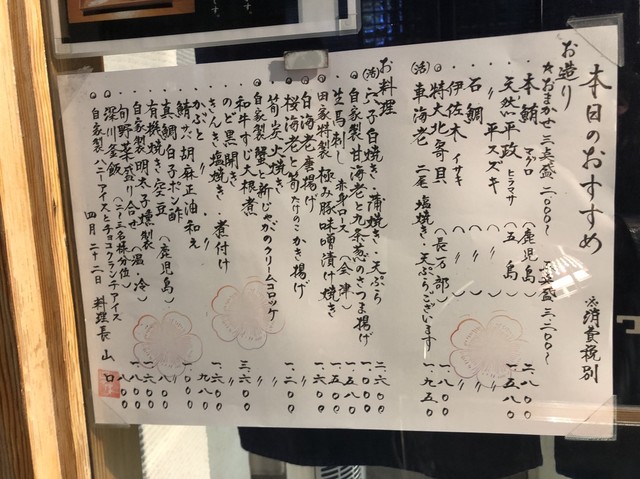 本日のおすすめ ※消費税別
お造り
☆おまかせ 三点盛 二.〇〇〇〜 五点盛 三.二〇〇〜
本鮪 マグロ (鹿児島) 二.八〇〇
天然平政 ヒラマサ (五島) 一.五八〇
〃 平スズキ (〃) 〃
石鯛 (〃) 〃
伊佐木 イサキ (〃) 〃
特大北寄貝 (長万部) 一.九八〇
(活)車海老 二尾 塩焼き・天ぷらございます 一.九五〇
お料理
(活)穴子白焼き・蒲焼き・天ぷら 二.六〇〇
自家製甘海老と九条葱のさつま揚げ 一.〇〇〇
生馬刺し 赤身ロース (会津) 一.五八〇
田家特製 極み豚味噌漬け焼き 一.六〇〇
白海老唐揚げ
桜海老と筍たけのこかき揚げ 一.二〇〇
筍炭火焼き 〃
自家製 蟹と新じゃがのクリームコロッケ 〃
和牛すじ大根煮
のど黒開き 三.六〇〇
きんき塩焼き・煮付け
かぶと 〃 〃 一.六〇〇
鯖だ胡麻正油和え 九八〇
真鯛白子ポン酢 〃
有機焼き空豆 (鹿児島) 八〇〇
自家製 明太子燻製
旬野菜盛り合せ (温・冷)
深川釜飯 (二〜三名様分位) 一.八〇〇
自家製 ハニーアイスとチョコクランチアイス 八〇〇
四月二十二日 料理長 山口